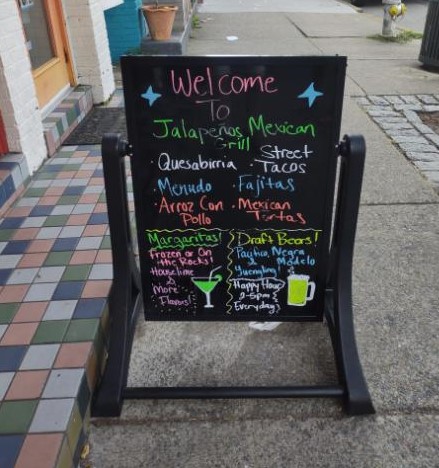 Welcome
To
Jalapeños Mexican
Grill
· Quesabirria · Street Tacos
· Menudo · Fajitas
· Arroz Con Pollo · Mexican Tortas
Margaritas!
Frozen or On
the Rocks!
House lime
&
More
Flavors!
Draft Beers!
Pacifico, Negra
& Modelo
Yuengling!
Happy Hour
2-5pm
Everyday